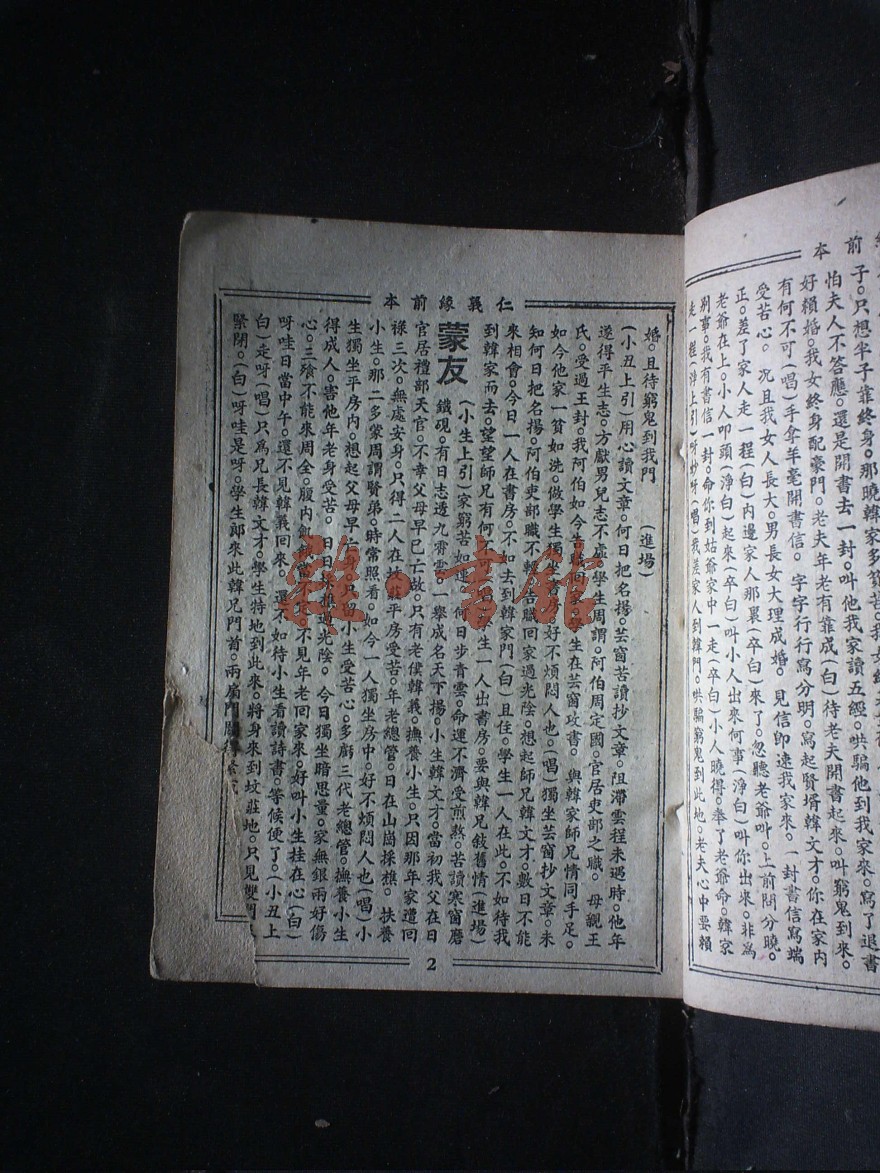 緣前本
子。只想半子靠終身。那曉韓家多貧苦。我女終
書。寫了退書
怕夫人不答應。還是開書去一封。叫他我家讀五經。哄騙他到我家
好賴婚。我女終身配豪門。老夫年老有靠成(白)待老夫開書起來。叫窮鬼到來。
有何不可(唱)手拿羊毫開書信。字字行行寫分明。寫起賢壻韓文才。你在家內
受苦心。況且我女人長大。男長女大理成婚。見信即速我家來。一封書信寫端
正。差了家人走一程(白)內邊家人那裏(卒白)來了。忽聽老爺叫。上前問分曉。
老爺在上。小人叩頭(淨白)起來(卒白)叫小人出來何事(淨白)叫你出來。非爲
別事。我有書信一封。命你到姑爺家中一走(卒白)小人曉得。奉了老爺命。韓家
走一程(淨上引)呀妙呀(唱)我差家人到韓門。哄騙窮鬼到此地。老夫心中要賴
仁義緣前本
婚。且待窮鬼到我門 (進場)
(小丑上引)用心讀文章。何日把名揚。芸窗苦讀抄文章。阻滯雲程未遇時。他年
遂得平生志。方獻男兒志不虛。學生周謂。阿伯周定國。官居吏部之職。母親王
氏。受過王封。我阿伯如今告職回家。學生在芸窗攻書。與韓家師兄情同手足。
如今他家一貧如洗。做學生獨坐書房。好不煩悶人也。(唱)獨坐芸窗抄文章。未
知何日把名揚。阿伯吏部職不轉。告職回家過光陰。想起師兄韓文才。數日不能
來相會。今日一人在書房。不如去到韓家門(白)且住。學生一人在此。不如待我
到韓家而去。望望師兄有何不可(唱)學生一人出書房。要與韓兄敍舊情(進場)
蒙友
(小生上引)家窮苦如連。何日步青雲。命運不濟受煎熬。苦讀寒窗磨
鐵硯。有日志透九霄雲。一舉成名天下揚。小生韓文才。當初我父在日
官居禮部天官。不幸父母早已亡故。只有老僕韓義。撫養小生。只因那年家遭回
祿三次。無處安身。只得二人在坟莊平房受苦。年老總管。日在山崗採樵。扶養
小生。那二多蒙周謂賢弟。時常照看。如今一人獨坐房中。好不煩悶人也(唱)小
生獨坐平房內。想起父母早亡身。只留小生受苦心。多虧三代老總管。撫養小生
得成人。害他年老身受苦。日日採樵過光陰。今日獨坐暗思量。家無銀兩好傷
心。三飱不能來周全。腹內飢餓當不
不見年老回家來。好叫小生挂在心(白)
呀哇日當中午。還不見韓義回來。還不如待小生看讀詩書。等候便了(小丑上
白)走呀(唱)只爲兄長韓文才。學生特地到此來。將身來到坟莊地。只見雙門
緊閉。(白)呀哇是呀。學生郎來此韓兄門首。兩扇門
2
雜·書館